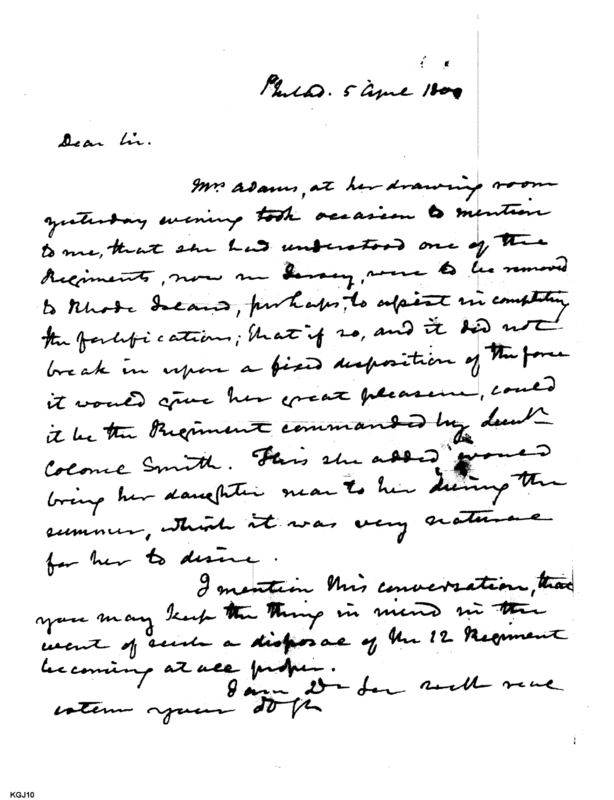 Philad. 5 April 1800
Dear Sir.
Mrs Adams, at her drawing room
yesterday evening took occasion to mention
to me, that she had understood one of the
Regiments, now in Jersey, were to be removed
to Rhode Island, perhaps, to assist in completing
the fortifications; that if so, and it did not
break in upon a fixed disposition of the force
it would give her great pleasure, could
it be the Regiment commanded by Lieut
Colonel Smith. This she added would
bring her daughter near to her during the
summer, which it was very natural
for her to desire.
I mention this conversation, that
you may keep the thing in mind in the
event of such a disposal of the 12 Regiment
becoming at all proper.
I am Dr Sir with real
esteem your
KGJ10